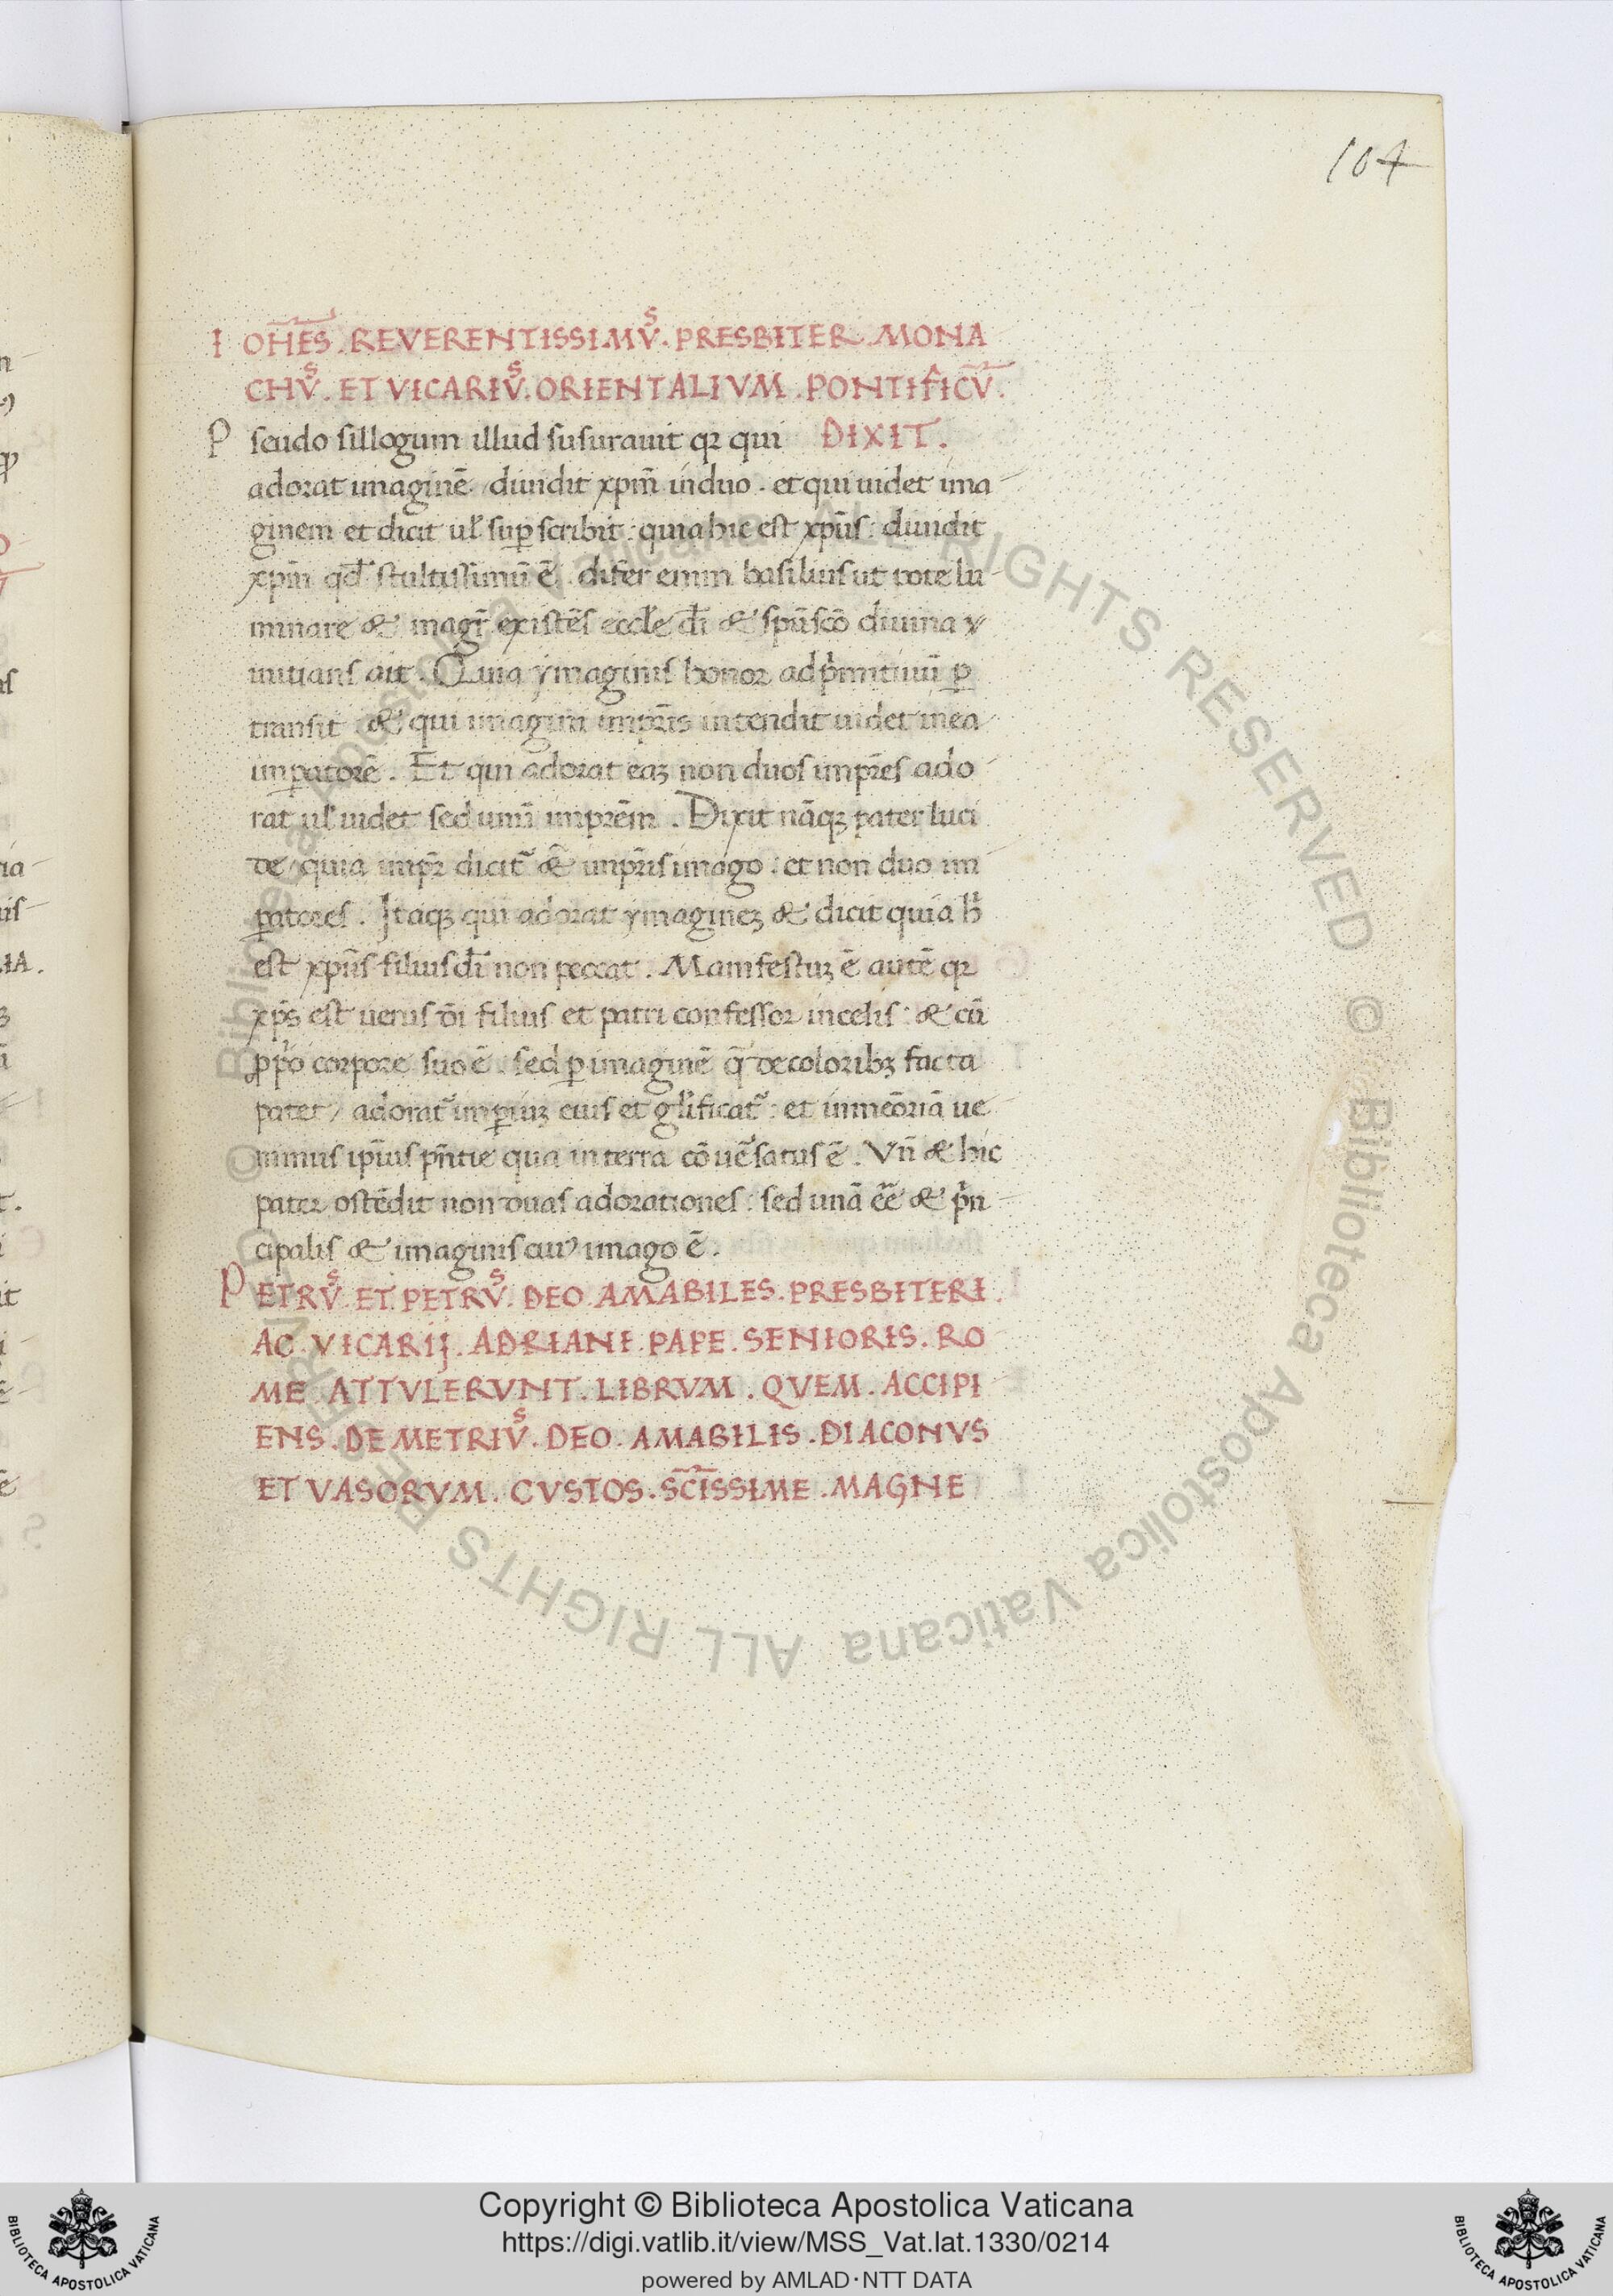 104
I OHES̄. REVERENTISSIMVˢ. PRESBITER. MONA
CHVˢ. ET VICARIVˢ. ORIENTALIVM. PONTIFICV̄.
P seudo sillogum illud susurauit qr qui DIXIT.
adorat imaginē. diuidit xpm̄ in duo. et qui uidet ima
ginem et dicit ul' sup scribit: quia hic est xpūs: diuidit
xpm̄ qd' stultissimū ē. difer enim basilius ut pote lu
minare & magr̄ existēs eccl'e dī & spūscō diuina
initians ait. Quia ymaginis honor ad pͥmitiuū p
transit & qui imaginī impr̄is intendit uidet in ea
impatorē. Et qui adorat eaꝫ non duos impr̄es ado
rat ul' uidet sed unū impr̄em. Dixit nāqꝫ pater luci
de quia impr̄ dicit᷑ & impr̄is imago: et non duo im
patores. Itaqꝫ qui adorat ymagineꝫ & dicit quia h̄
est xpūs filius dī non peccat. Manifestuꝫ ē autē qr
xp̄s est uerus dī filius et patri confessor in celis: & cū
ppͥo corpore suo ē sed p imaginē q̄ de coloribꝫ facta
patet, adorat᷑ impiuꝫ eius et gl'ificat᷑: et in meōriā ue
nimus ipīus pn̄tie qua in terra cōuēsatus ē. Vn̄ & hic
pater ostēdit non duas adorationes: sed unā ēē & pͥn
cipalis & imaginis cuiꝰ imago ē.
P ETRVˢ. ET. PETRVˢ. DEO. AMABILES. PRESBITERI.
AC. VICARIJ. ADRIANI. PAPE. SENIORIS. RO
ME. ATTVLERVNT. LIBRVM. QVEM. ACCIPI
ENS. DEMETRIVˢ. DEO. AMABILIS. DIACONVS
ET VASORVM. CVSTOS. SC̄ISSIME. MAGNE
© Biblioteca Apostolica Vaticana ALL RIGHTS RESERVED
© Biblioteca Apostolica Vaticana ALL RIGHTS RESERVED
Copyright © Biblioteca Apostolica Vaticana
https://digi.vatlib.it/view/MSS_Vat.lat.1330/0214
powered by AMLAD·NTT DATA
BIBLIOTECA APOSTOLICA VATICANA
BIBLIOTECA APOSTOLICA VATICANA